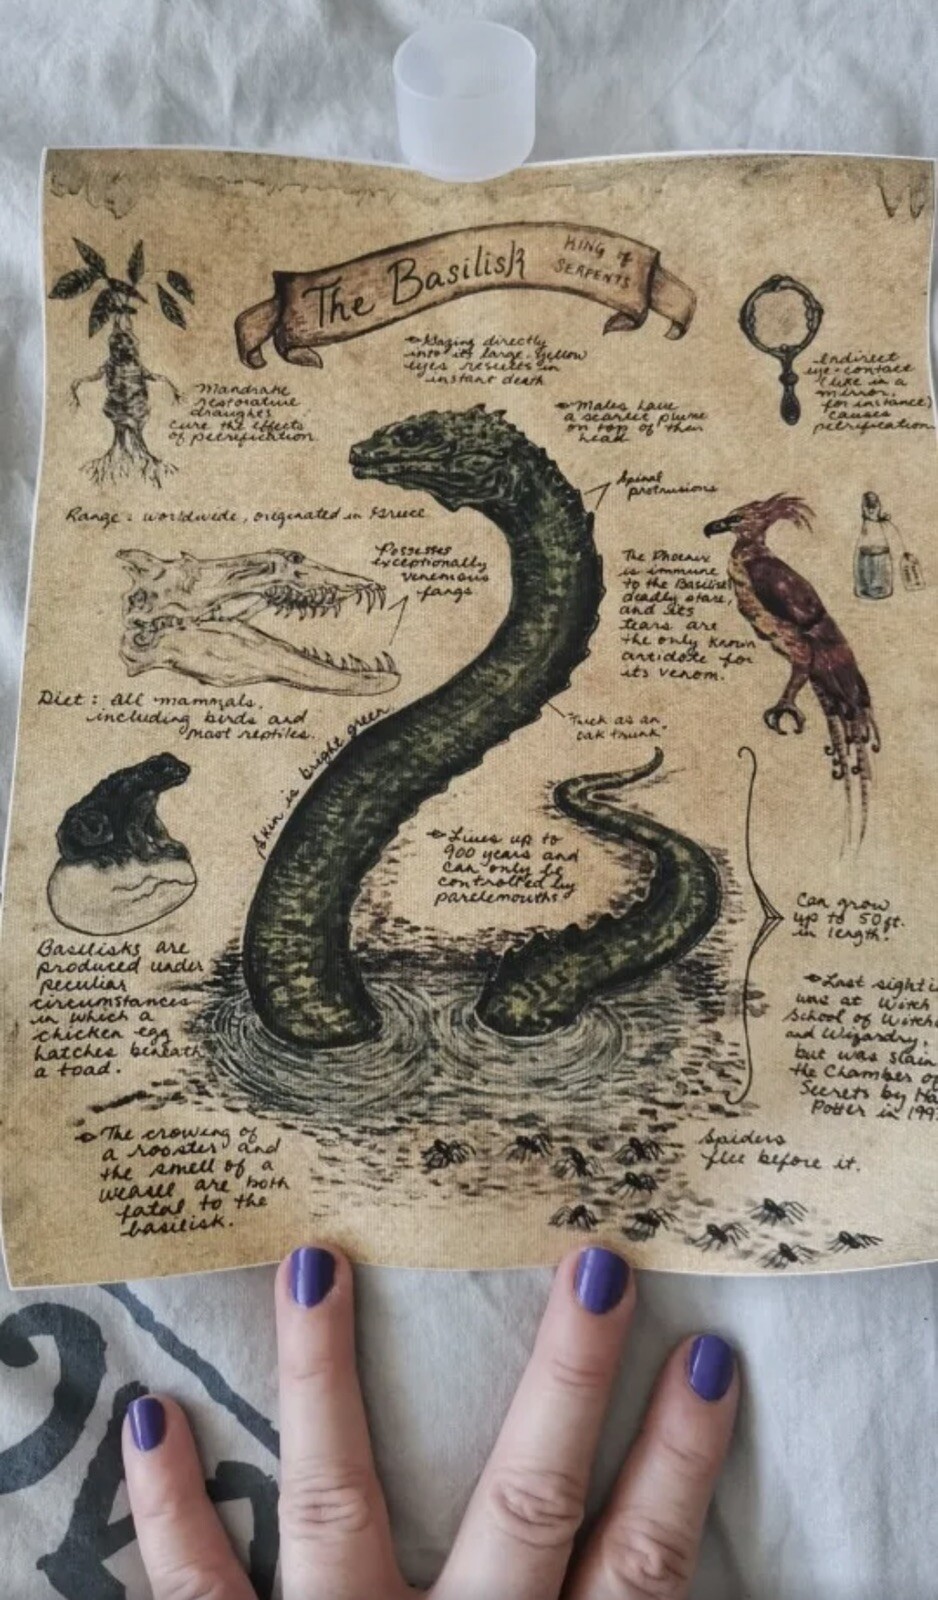 The Basilisk
KING of
SERPENTS
Gazing directly
into its large yellow
eyes results in
instant death
Mandrake
restorative
draughts
cure the effects
of petrification.
Males have
a scarlet plume
on top of their
head
Indirect
eye-contact
(like in a
mirror,
for instance)
causes
petrification.
Spinal
protrusions
Range: worldwide, originated in Greece
Possesses
exceptionally
venomous
fangs
The Phoenix
is immune
to the Basilisk
deadly stare,
and its
tears are
the only known
antidote for
its venom.
Diet: all mammals,
including birds and
most reptiles.
Skin is bright green
"Thick as an
oak trunk"
Lives up to
900 years and
can only be
controlled by
parselmouths
Can grow
up to 50ft.
in length!
Basilisks are
produced under
peculiar
circumstances
in which a
chicken egg
hatches beneath
a toad.
Last sighti
was at Witch
School of Witchc
and Wizardry,
but was slain
the Chamber of
Secrets by Ha
Potter in 199
The crowing of
a rooster and
the smell of a
weasel are both
fatal to the
basilisk.
Spiders
flee before it.